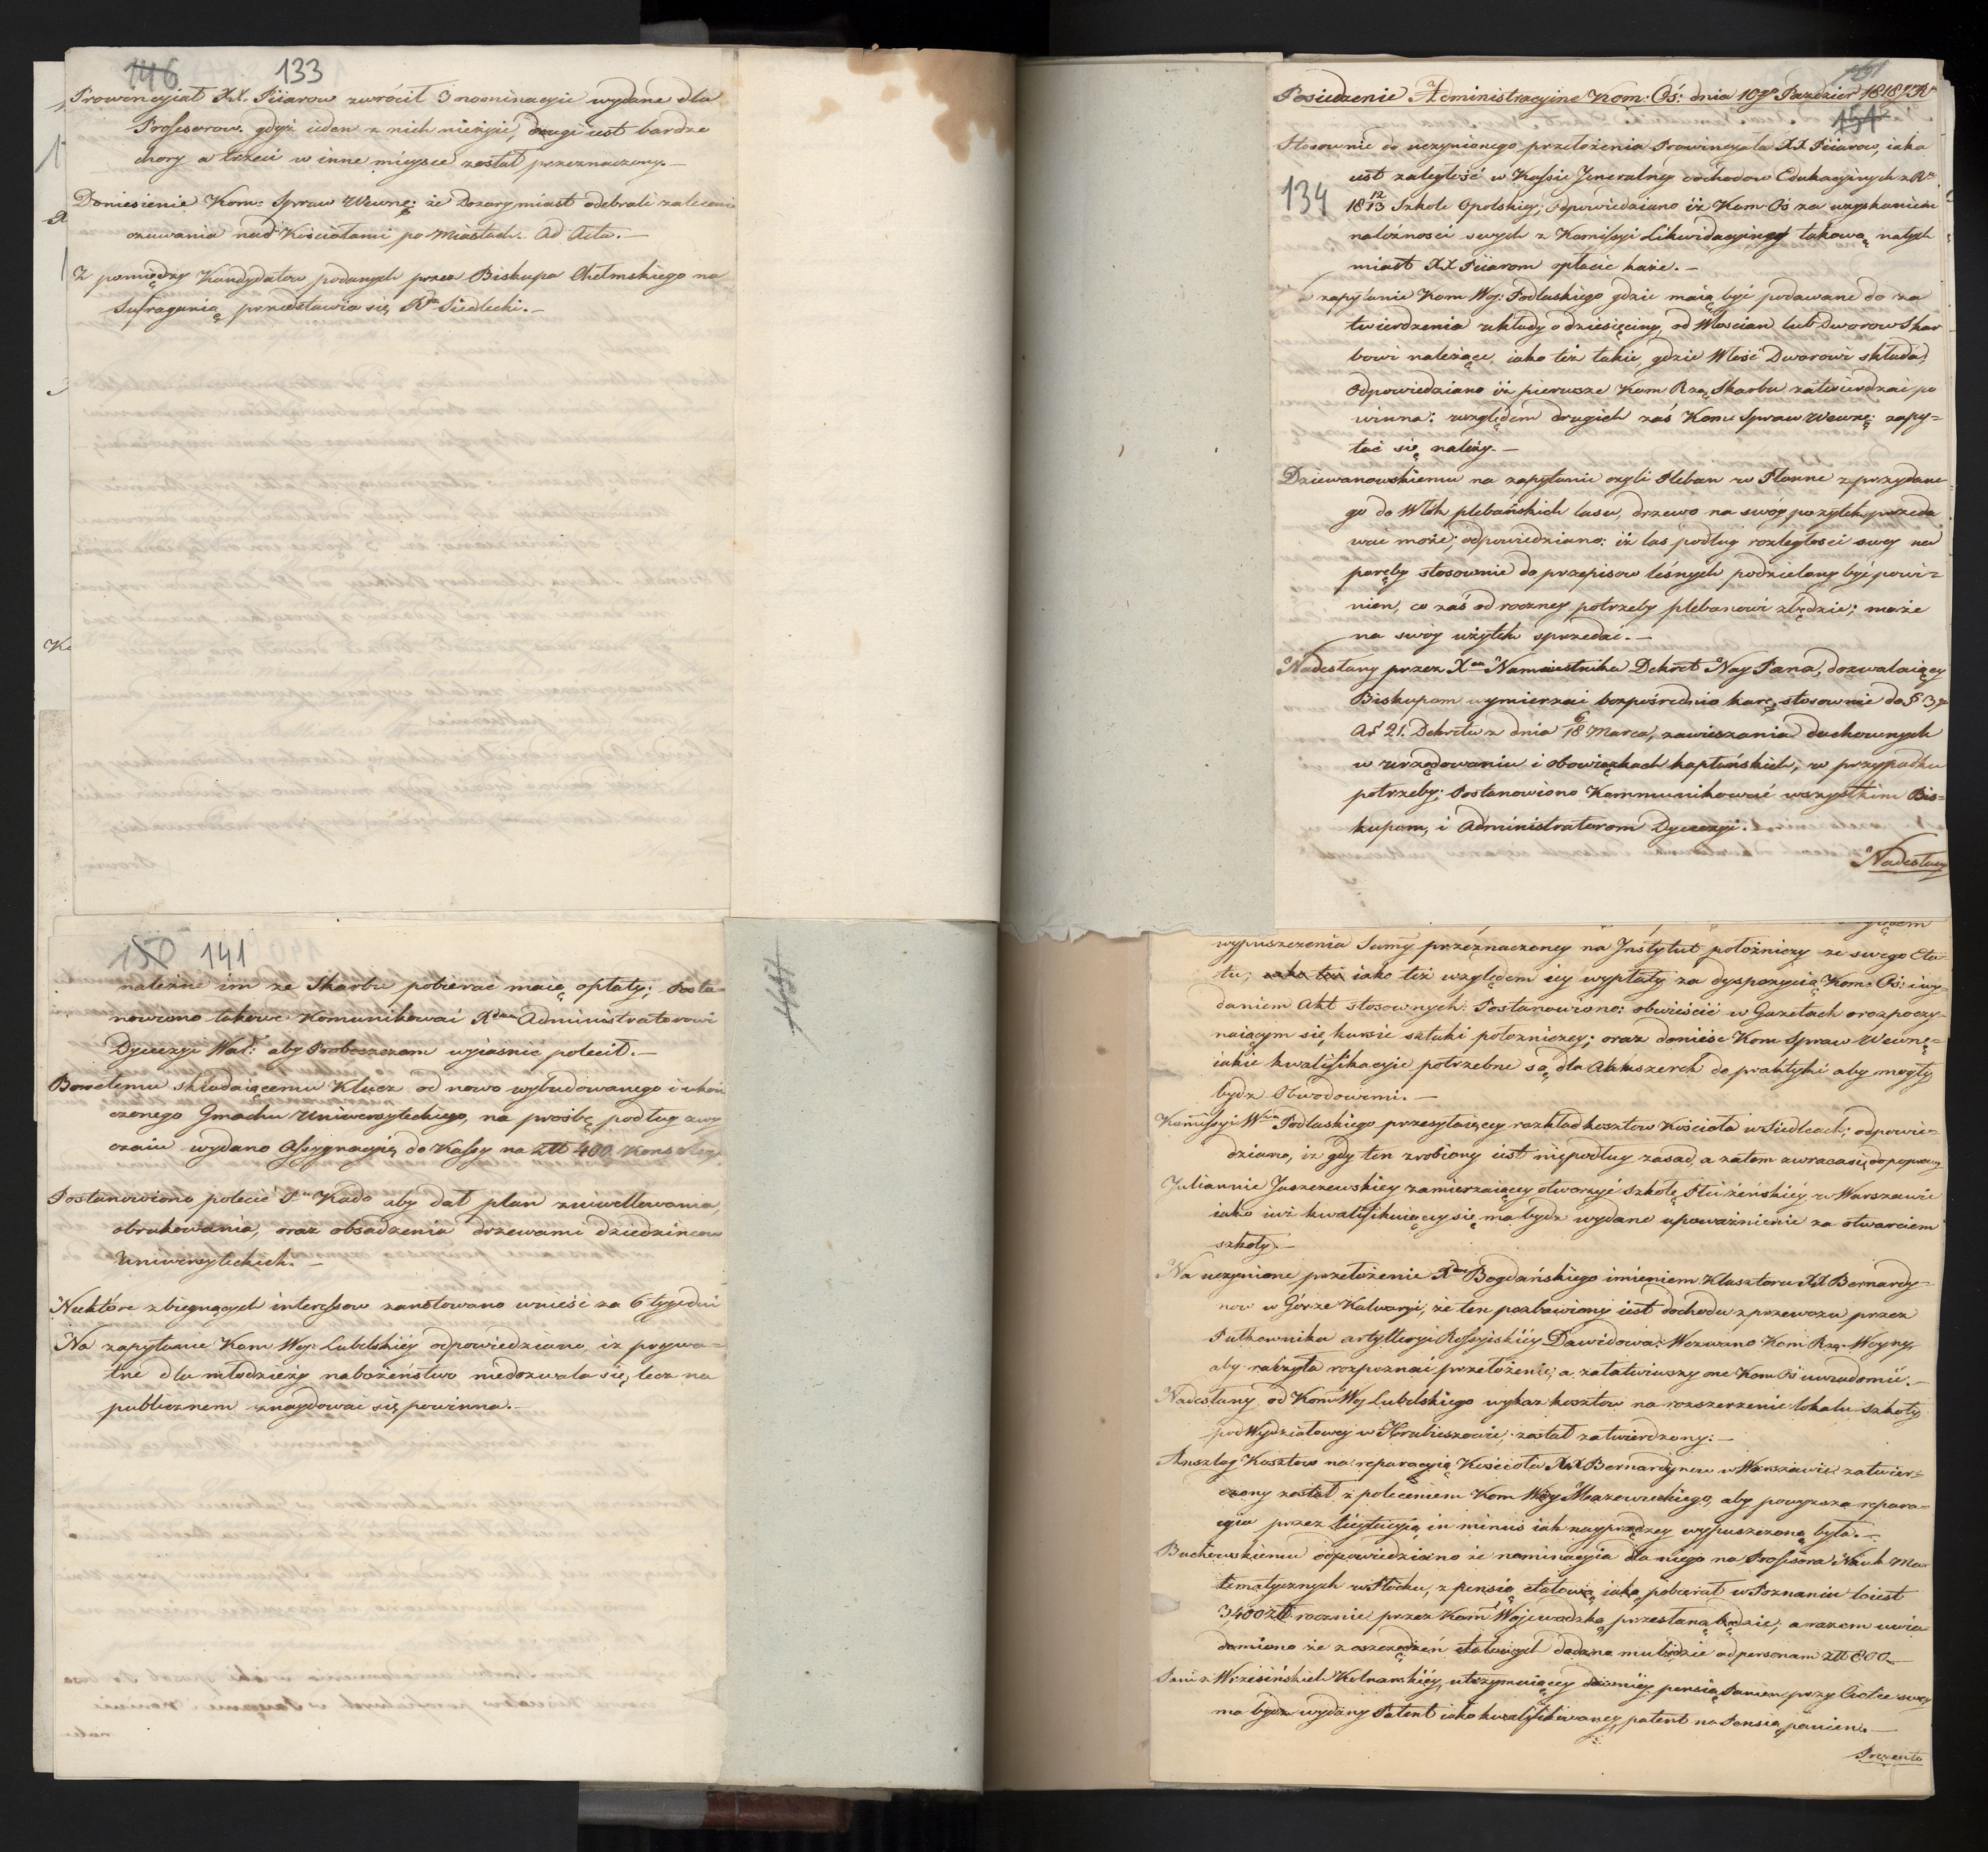 146 133
Prowincyiał XX. Piiarow zwrócił 3 nominacyie wydane dla
Professorow. gdyż ieden z nich nieżyie, drugi iest bardzo
chory a trzeci w inne mieysce został przeznaczony.—
Doniesienie Kom: Spraw Wewnę: że Dozory miast odebrali zalecenie
czuwania nad Kościołami po Miastach. Ad Acta.—
Z pomiędzy Kandydatow podanych przez Biskupa Chełmskiego na
Sufraganią przedstawia się Xdz Siedlecki.—
150 141
należne im ze Skarbu pobierac maią opłaty; Posta=
nowiono takowe Komunikować Xdzu Administratorowi
Dyecezyi War: aby Proboszczom wyiaśnić polecił.—
Boretemu składaiącemu Klucz od nowo wybudowanego i ukoń
czonego Gmachu Uniwersyteckiego, na prośbę podług zwy
czaiu wydano Assygnacyię do Kassy na Złł 400
Postanowiono polecić Pu Kado aby dał plan zniwellowania
obrukowania, oraz obsadzenia drzewami dziedzincow
Uniwersyteckich.—
Niektóre zbiegnących interessow zanotowano wnieść za 6 tygodni
Na zapytanie Kom Woj: Lubelskiéy odpowiedziano, iż prywa=
tne dla młodzieży nabożeństwo niedozwala się, lecz na
publicznem znaydować się powinna.—
Posiedzenie Administracyine Kom: Oś: dnia 10go Paździer 1818 Rr
151
134
Stosownie do uczynionego przełożenia Prowincyała XX Piiarow, iaka
iest zaległość w Kassie Jeneralney dochodow Edukacyinych z Ru
1812/13 Szkole Opolskiey; Odpowiedziano iż Kom Oś za uzyskaniem
należności swych z Komissyi Likwidacyiney takową natych
miast XX Piiarom opłacic każe.—
zapytanie Kom Woj: Podlaskiego gdzie maią być podawane do za
twierdzenia układy o dziesięciny, od Włoscian lub Dworow Skar
bowi należące, iako też takie, gdzie Włość Dworowi składa,
Odpowiedziano iż pierwsze Kom Rzą Skarbu zatwierdzać po
winna: względem drugich zaś Kom: Spraw Wewnę: zapy=
tać się należy.—
Dziewanowskiemu na zapytanie czyli Pleban w Płonne z przydane
go do Włók plebańskich lasu, drzewo na swóy pożytek przeda
wać może; odpowiedziano: iż las podług rozległosci swey na
poręby stosownie do przepisow leśnych podzielony być powi=
nien, co zaś od roczney potrzeby plebanowi zbędzie; może
na swóy użytek sprzedać.—
Nadesłany przez Xcia Namiestnika Dekret Nay Pana, dozwalaiący
Biskupom wymierzać bezpośrednio karę, stosownie do § 3go
Art 21. Dekretu z dnia 6/18 Marca, zawieszania duchownych
w urzędowaniu i obowiązkach kapłańskich, w przypadku
potrzeby; Postanowiono Kommunikować wszystkim Bis=
kupom, i Administratorom Dyecezyi.—
Nadesłany
wypuszczenia Summy przeznaczoney na Instytut położniczy ze swego Eta=
tu; iako też względem iey wypłaty za dyspozycią Kom: Oś: i wy=
daniem Akt stosownych: Postanowiono: obwieścić w Gazetach o rozpoczy=
naiącym się kursie sztuki położniczey; oraz donieść Kom Spraw Wewnę=
iakie kwalifikacyie potrzebne są dla Akuszerek do praktyki aby mogły
bydź Obwodowemi.—
Komissyi Wwa Podlaskiego przesyłaiącey rozkład kosztow Kościoła w Siedlcach; odpowie=
dziano, iż gdy ten zrobiony iest niepodług zasad, a zatem zwraca się do poprawy
Juliannie Jaszczewskiey zamierzaiącey otworzyć Szkołę Płci żeńskiéy w Warszawie
iako iuż kwalifikuiącey się ma bydź wydane upoważnienie za otwarciem
szkoły.—
Na uczynione przełożenie Xdza Bogdańskiego imieniem Klasztoru XX Bernardy=
now w Górze Kalwaryi, że ten pozbawiony iest dochodu z przewozu przez
Pułkownika artylleryi Rossyiskiéy Dawidowa: Wezwano Kom Rzą: Woyny,
aby raczyła rozpoznać przełożenie, a załatwiwszy one Kom Oś uwiadomić.—
Nadesłany od Kom Woj Lubelskiego wykaz kosztow na rozszerzenie lokalu szkoły
podWydziałowey w Hrubieszowie, został zatwierdzony.—
Anszlag Kosztow na reparacyią Kościoła XX Bernardynow w Warszawie zatwier=
dzony został z poleceniem Kom Woy Mazowieckiego, aby powyższa repara=
cyia przez licytacyią in minus iak nayprędzey wypuszczoną była.—
Buchowskiemu odpowiedziano że nominacyia dla niego na Professora Nauk Ma=
tematycznych w Płocku, z pensią etatową iaką pobierał w Poznaniu to iest
3,400 Złł rocznie przez Kom Wojewodzką przesłaną będzie; a razem uwia
domiono że z oszczędzeń etatowych dodana mu będzie ad personam Złł 600.—
Pani z Wrzesińskich Kolnarskiéy, utrzymuiącey dawniéy pensią Panien przy Ciotce swey
ma bydź wydany Patent iako kwalifikowaney patent na Pensią panien.—
Prezenta